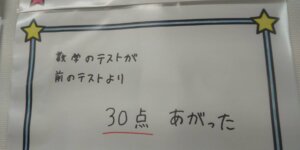 数学のテストが
前のテストより
30点 あがった